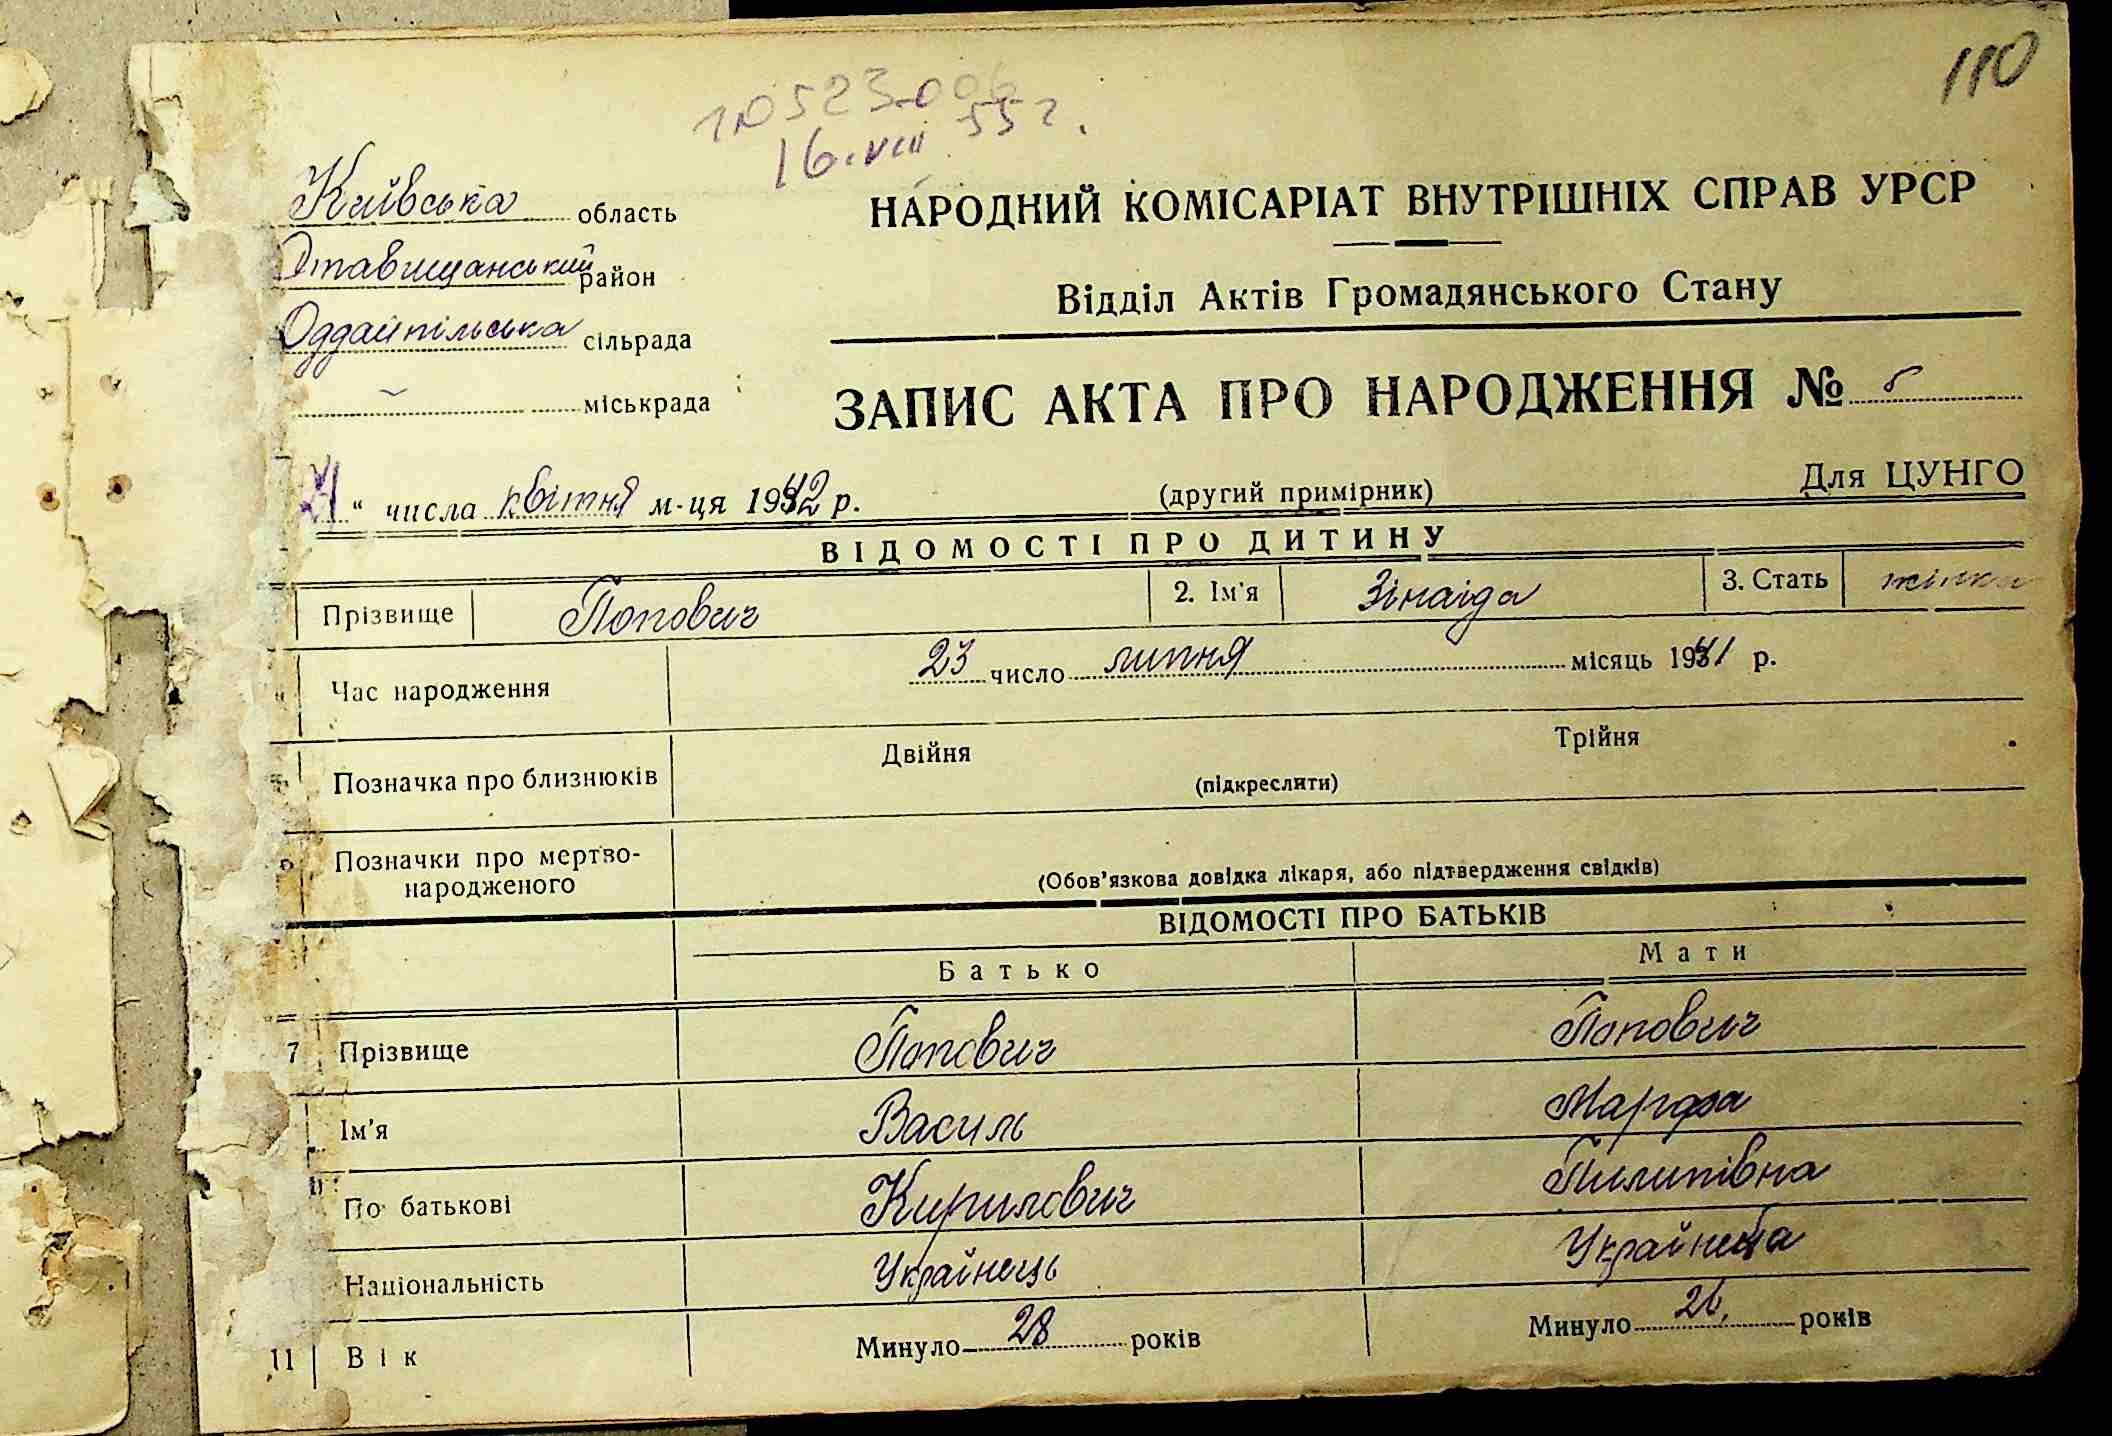 110
16.VIII 55 г.
Київська область
Ставищанський район
Оддайпільська сільрада
міськрада
НАРОДНИЙ КОМІСАРІАТ ВНУТРІШНІХ СПРАВ УРСР
Відділ Актів Громадянського Стану
ЗАПИС АКТА ПРО НАРОДЖЕННЯ № 5
21 " числа квітня м-ця 1942 р. (другий примірник) Для ЦУНГО
ВІДОМОСТІ ПРО ДИТИНУ
Прізвище Попович 2. Ім'я Зінаіда 3. Стать жінка
Час народження 23 число липня місяць 1941 р.
Позначка про близнюків Двійня Трійня
(підкреслити)
Позначки про мертво-
народженого (Обов'язкова довідка лікаря, або підтвердження свідків)
ВІДОМОСТІ ПРО БАТЬКІВ
Батько Мати
7 Прізвище Попович Попович
Ім'я Василь Марфа
По батькові Кирилович Пилипівна
Національність Українець Українеця
11 Вік Минуло 28 років Минуло 26. років